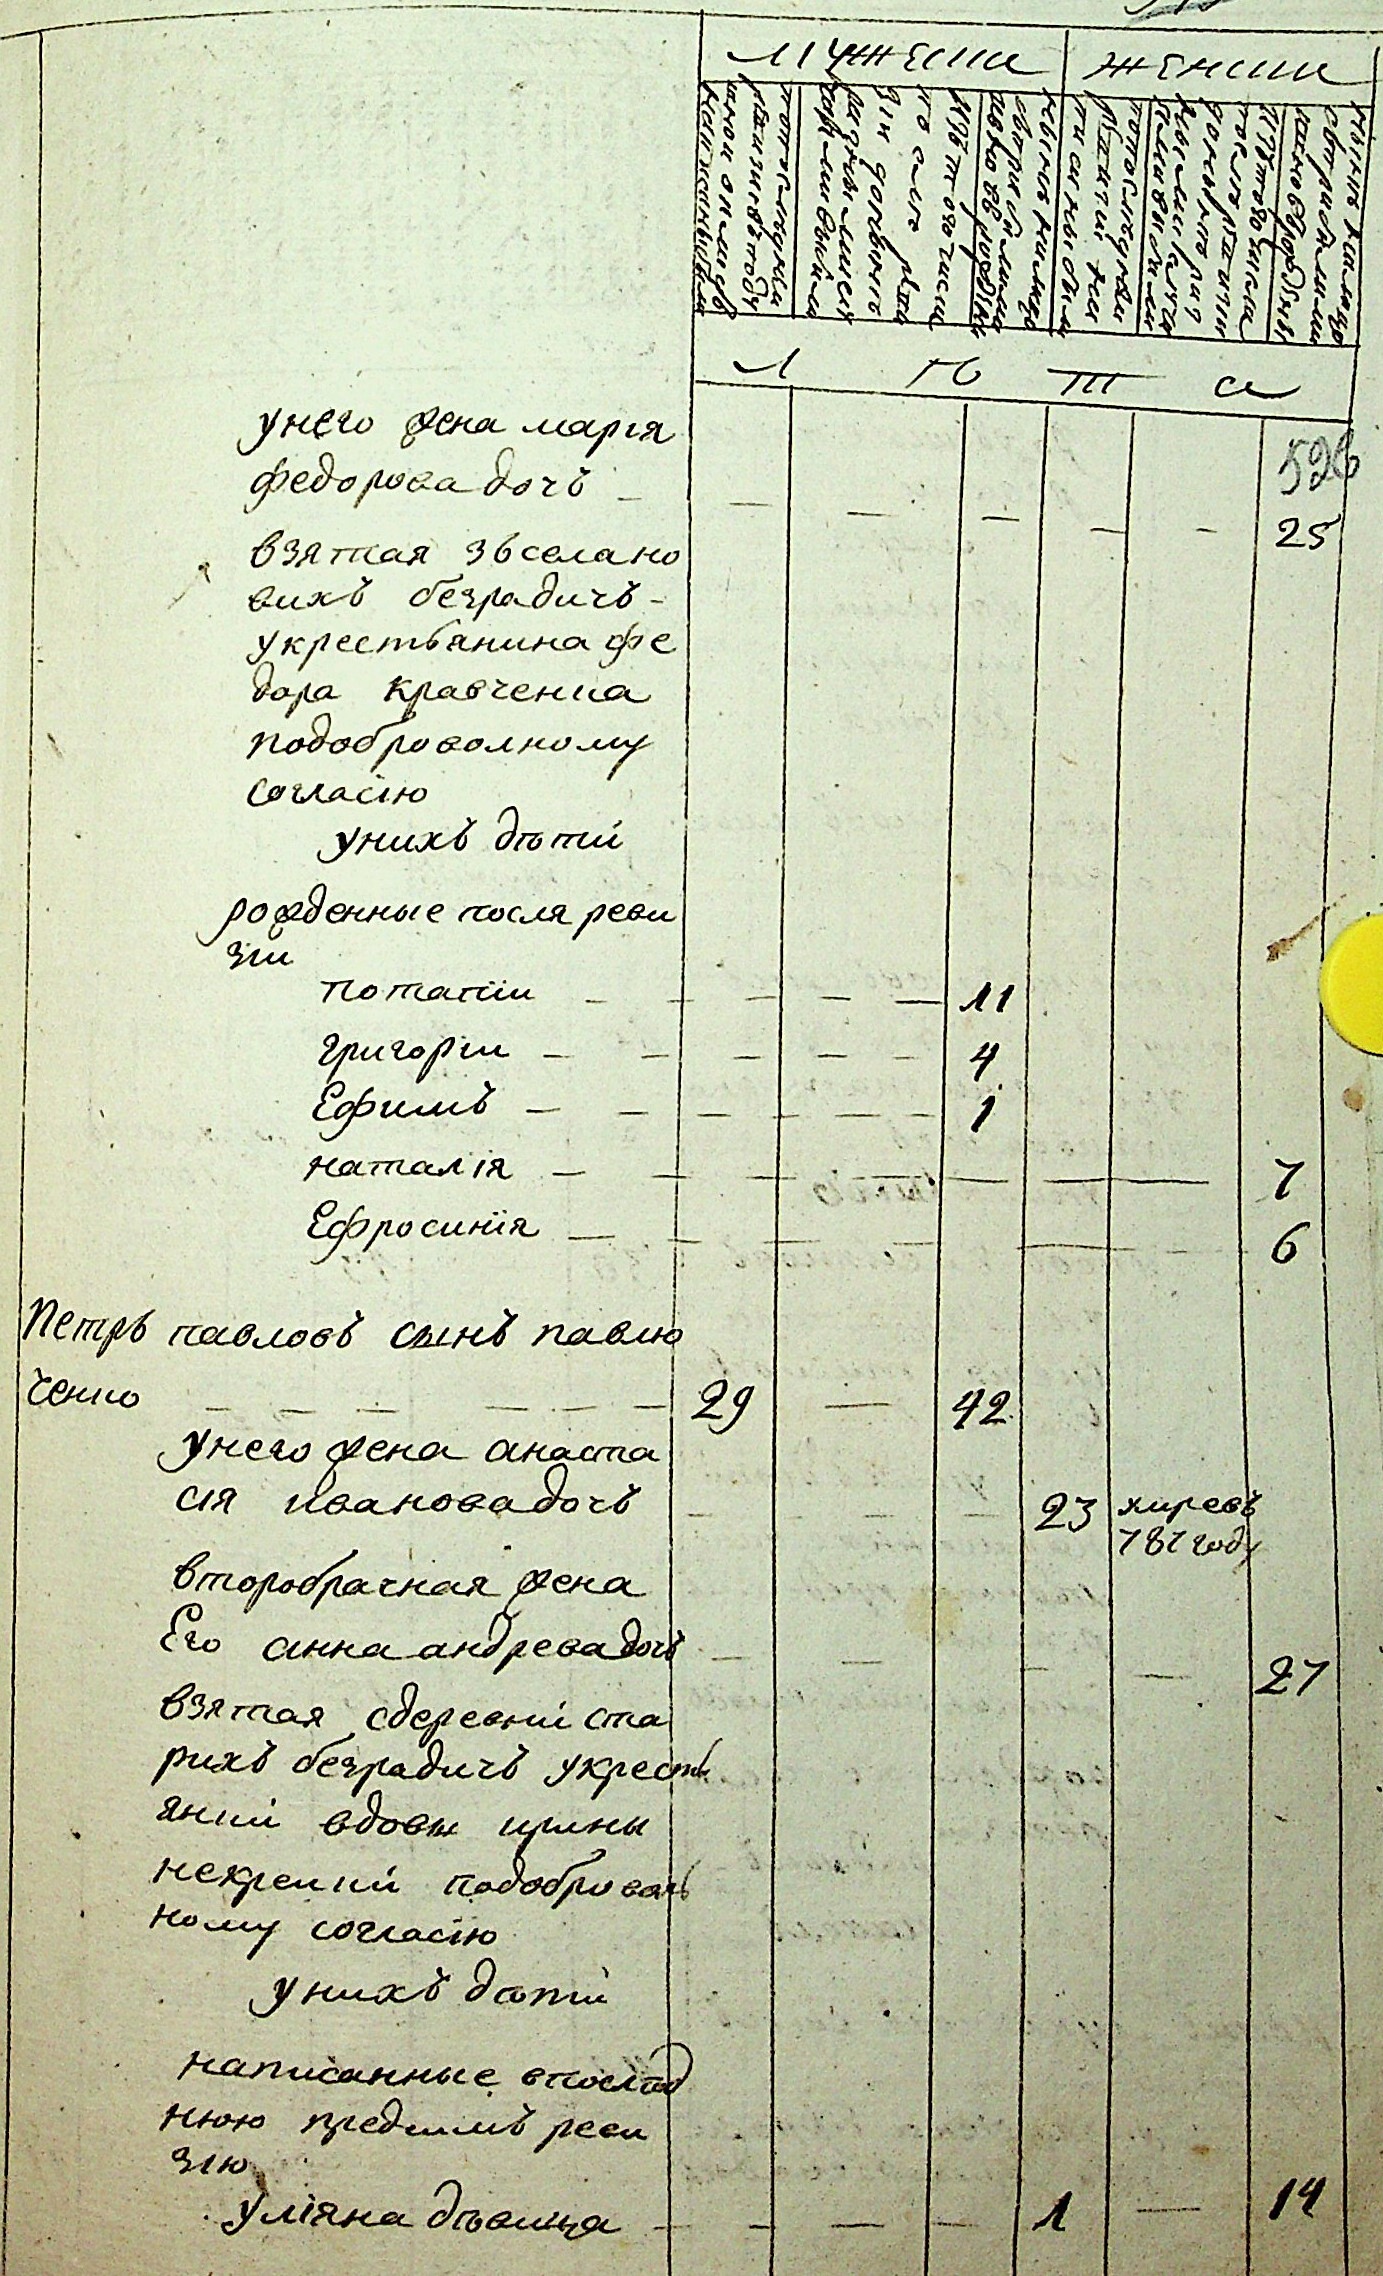 мужеска женска
Л Ѣ Т а
унего жена марія
526
федорова дочъ
25
взятая зъселано
вихъ безрадичъ
укрестьянина фе
дора кравченка
подоброволному
согласію
унихъ дѣти
рожденные посля реви
зіи
потапіи 11
григоріи 4
Ефимъ 1
наталія 7
Ефросинія 6
Петръ павловъ сынъ павлю
ченко 29 42
унего жена анаста
сія Ивановадочъ 23 умревъ
787 году
второбрачная жена
Его анна андревадочъ 27
взятая сдеревни ста
рихъ безрадичъ укресть
янки вдовы ирины
некрешки подобровол
ному согласію
унихъ дѣти
написанные впослѣд
нюю предсимъ реви
зію
уліяна дѣвица 1 14